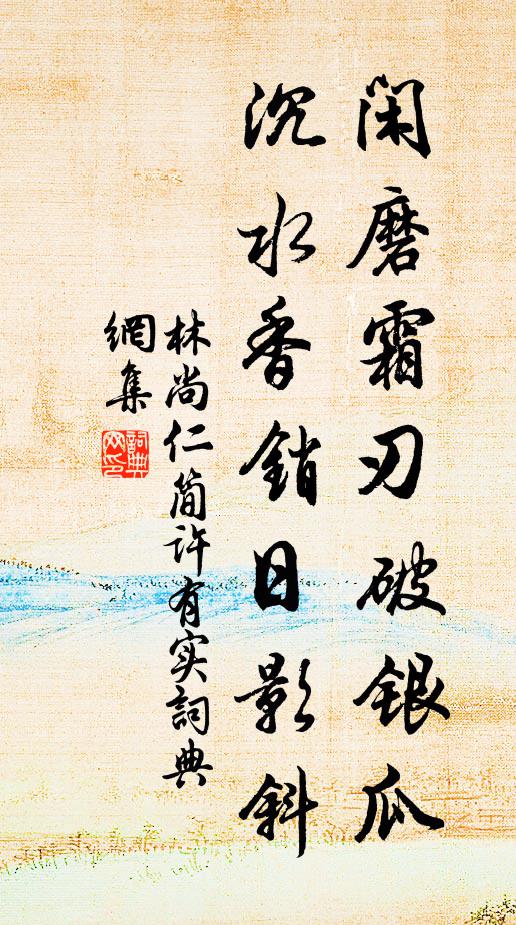 闲磨霜刃破银瓜
沉水香销日影斜
林尚仁简许有实詞典
網集
詞典
网印